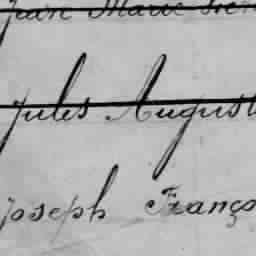 Jean Marie
Jules August
Joseph Franço